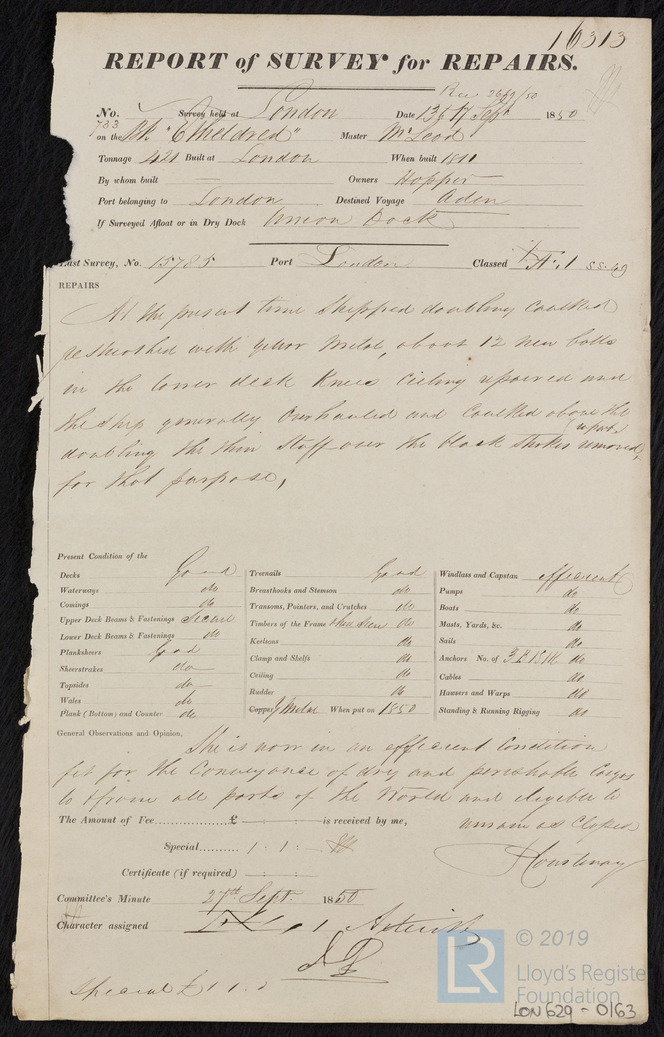 16313
REPORT of SURVEY for REPAIRS.
Rec 26/9/50
No. 783 Survey held at London Date 13 & 17 Septr 1850
on the Bk "Etheldred" Master McLeod
Tonnage 421 Built at London When built
By whom built — Owners Hopper
Port belonging to London Destined Voyage Aden
If Surveyed Afloat or in Dry Dock Union Dock
Last Survey, No. 15785 Port London Classed Æ.1 SS.
REPAIRS
At the present time Shipped doubling Caulked
resheathed with yellow Metal, about 12 new bolts
in the lower deck Knees Cieling repaired and
the ship generally Overhauled and Caulked above the
doubling the thin Stuff over the black Strakes removed in part
for that purpose,
Present Condition of the
Decks Good
Waterways do
Comings do
Upper Deck Beams & Fastenings Secure
Lower Deck Beams & Fastenings do
Planksheers Good
Sheerstrakes do
Topsides do
Wales do
Plank (Bottom) and Counter do
Treenails Good
Breasthooks and Stemson do
Transoms, Pointers, and Crutches do
Timbers of the Frame when seen
Keelsons do
Clamp and Shelfs do
Ceiling do
Rudder do
Copper Y Metal When put on 1850
Windlass and Capstan efficient
Pumps do
Boats do
Masts, Yards, &c. do
Sails do
Anchors No. of 3 B 1 S 1 K do
Cables do
Hawsers and Warps do
Standing & Running Rigging do
General Observations and Opinion.
She is now in an efficient Condition
fit for the Conveyance of dry and perishable Cargos
to & from all parts of the World and eligible to
remain as Classed
The Amount of Fee............£ — : — : — is received by me,
Special.......... 1 . 1 : —
Courtenay
Certificate (if required) : :
Committee's Minute 27th Sept. 1850
Character assigned Æ 1 Asterisk
Special £1 1 . .
© 2019
LR
Lloyd's Register
Foundation
LON629 - 0163